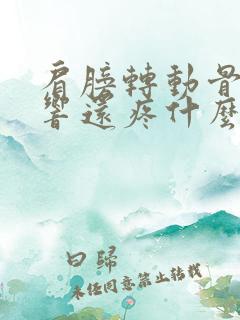 肩膀轉動骨
響還疼什麼
曰歸
未經同意禁止轉載